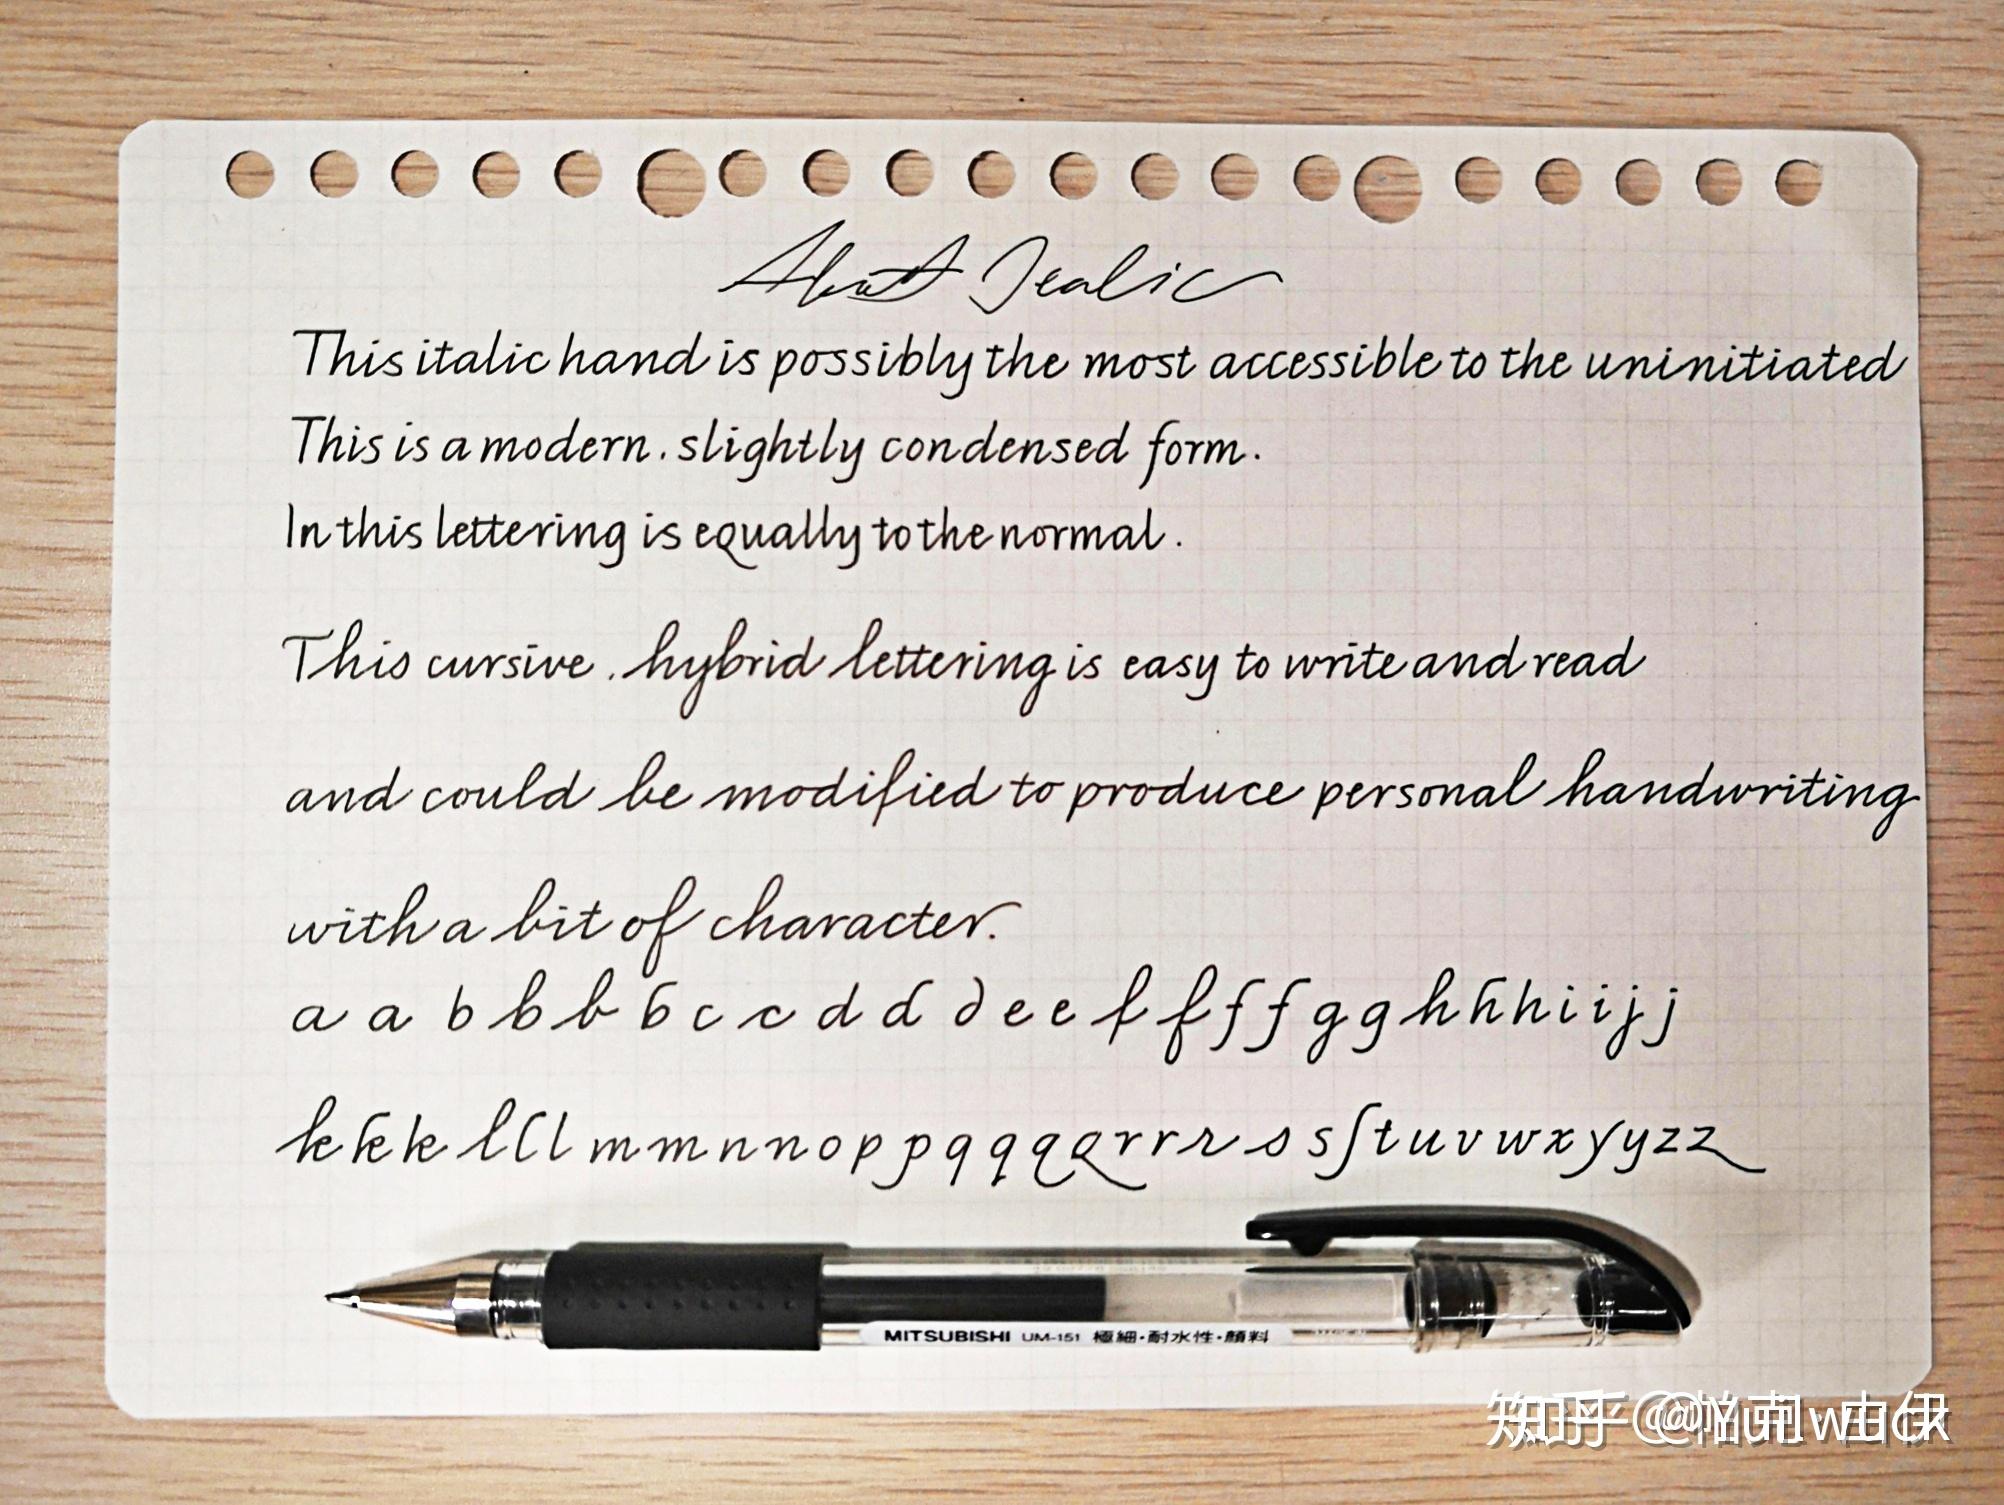 About Italic
This italic hand is possibly the most accessible to the uninitiated
This is a modern. slightly condensed form.
In this lettering is equally to the normal.
This cursive. hybrid lettering is easy to write and read
and could be modified to produce personal handwriting
with a bit of character.
a a b b b b c c d d d e e f f f f g g h h h i i j j
k k k l l l m m n n o p p q q q q r r r s s ſ t u v w x y y z z
MITSUBISHI UM-151 極細・耐水性・顔料
知乎